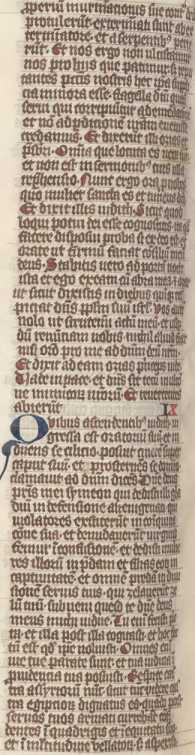 asperium murmurationis sue cont̃
protulerunt exterminati sunt ab ex
terminatore. et a serpentib' perie
runt. Et nos ergo non ulciscamur
nos pro hiis que patimur s; repu
tantes pctis nostris hec ip̃a suppli
cia minora esse flagella dñi quasi
serui qui corripimur ad emendatiõ
et nõ ad p̱ditionem nr̃am euenisse
credamus. Et dixerũt illi ozias et
p̃sbiri. Omnia que locuta es uera sũt
et non est in sermonib' tuis ulla
rep̃hensio. Nunc ergo ora p nobis
qm̃ mulier sancta es et timens dm̃
Et dixit illis iudith. Sicut quod
loqui potui dei esse cognoscitis: ita qd
facere disposui proba si ex deo est et
orate ut firmũ faciat cõsiliũ meũ
deus. Stabitis uos ad portã nocte
ista et ego exeam cũ abra mea et orate
ut sicut dixistis in diebus quinq; res
piciat dñs pp̃lm suũ isrl̃. Vos aut̃
nolo ut scrutemĩ actũ meũ et usq;
dũ renũtiam uobis nichil aliud fiat
nisi oro pro me ad dñm dm̃ nr̃m.
Et dixit ad eam ozias p̃nceps iude
Vade in pace et dñs sit tecũ in ultio
ne inimicorũ nr̃orũ. Et reuertentes
abierũt IX
Quibus ascendentib' iudith in
gressa est oratoriũ suũ et in
duens se cilicio. posuit cinerẽ super
caput suũ. et prosternẽs se dño
clamauit ad dñm dices. Dñe deus
patris mei symeon qui dedisti illi gla
diũ in defensione alienigenarũ qui
uiolatores extiterũt in coinqnati
one sua. et denudauerũt uirginis
femur ĩ confusionẽ. et dedisti mulie
res illorũ in p̃dam et filias eorũ in
captiuitatẽ. et omnẽ predã in diui
sionẽ seruis tuis. qui zelauerũt ze
lũ tuũ. subueni queso te dñe deus
meus michi uidue. Tu eni fecisti prio
ra. et illa post illa cogitasti. et hoc fac
tũ est qd̃ ip̃e uoluisti. Omnes eni
uie tue parate sunt. et tua iudicia ĩ
prouidentia tua posuisti. Respice cas
tra assyriorũ nũc sicut tũc uidere cas
tra egiptiorũ dignatus es. quãdo post
seruos tuos armati currebãt cõfi
dentes ĩ quadrigis et ĩ equitatu suo
et ĩ multitudine bellatorũ. s; aspexisti